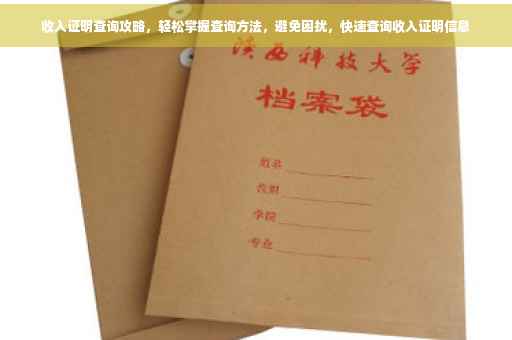 收入证明查询攻略，轻松掌握查询方法，避免困扰，快速查询收入证明信息
陕西科技大学
档案袋
姓名
性别
学院
专业